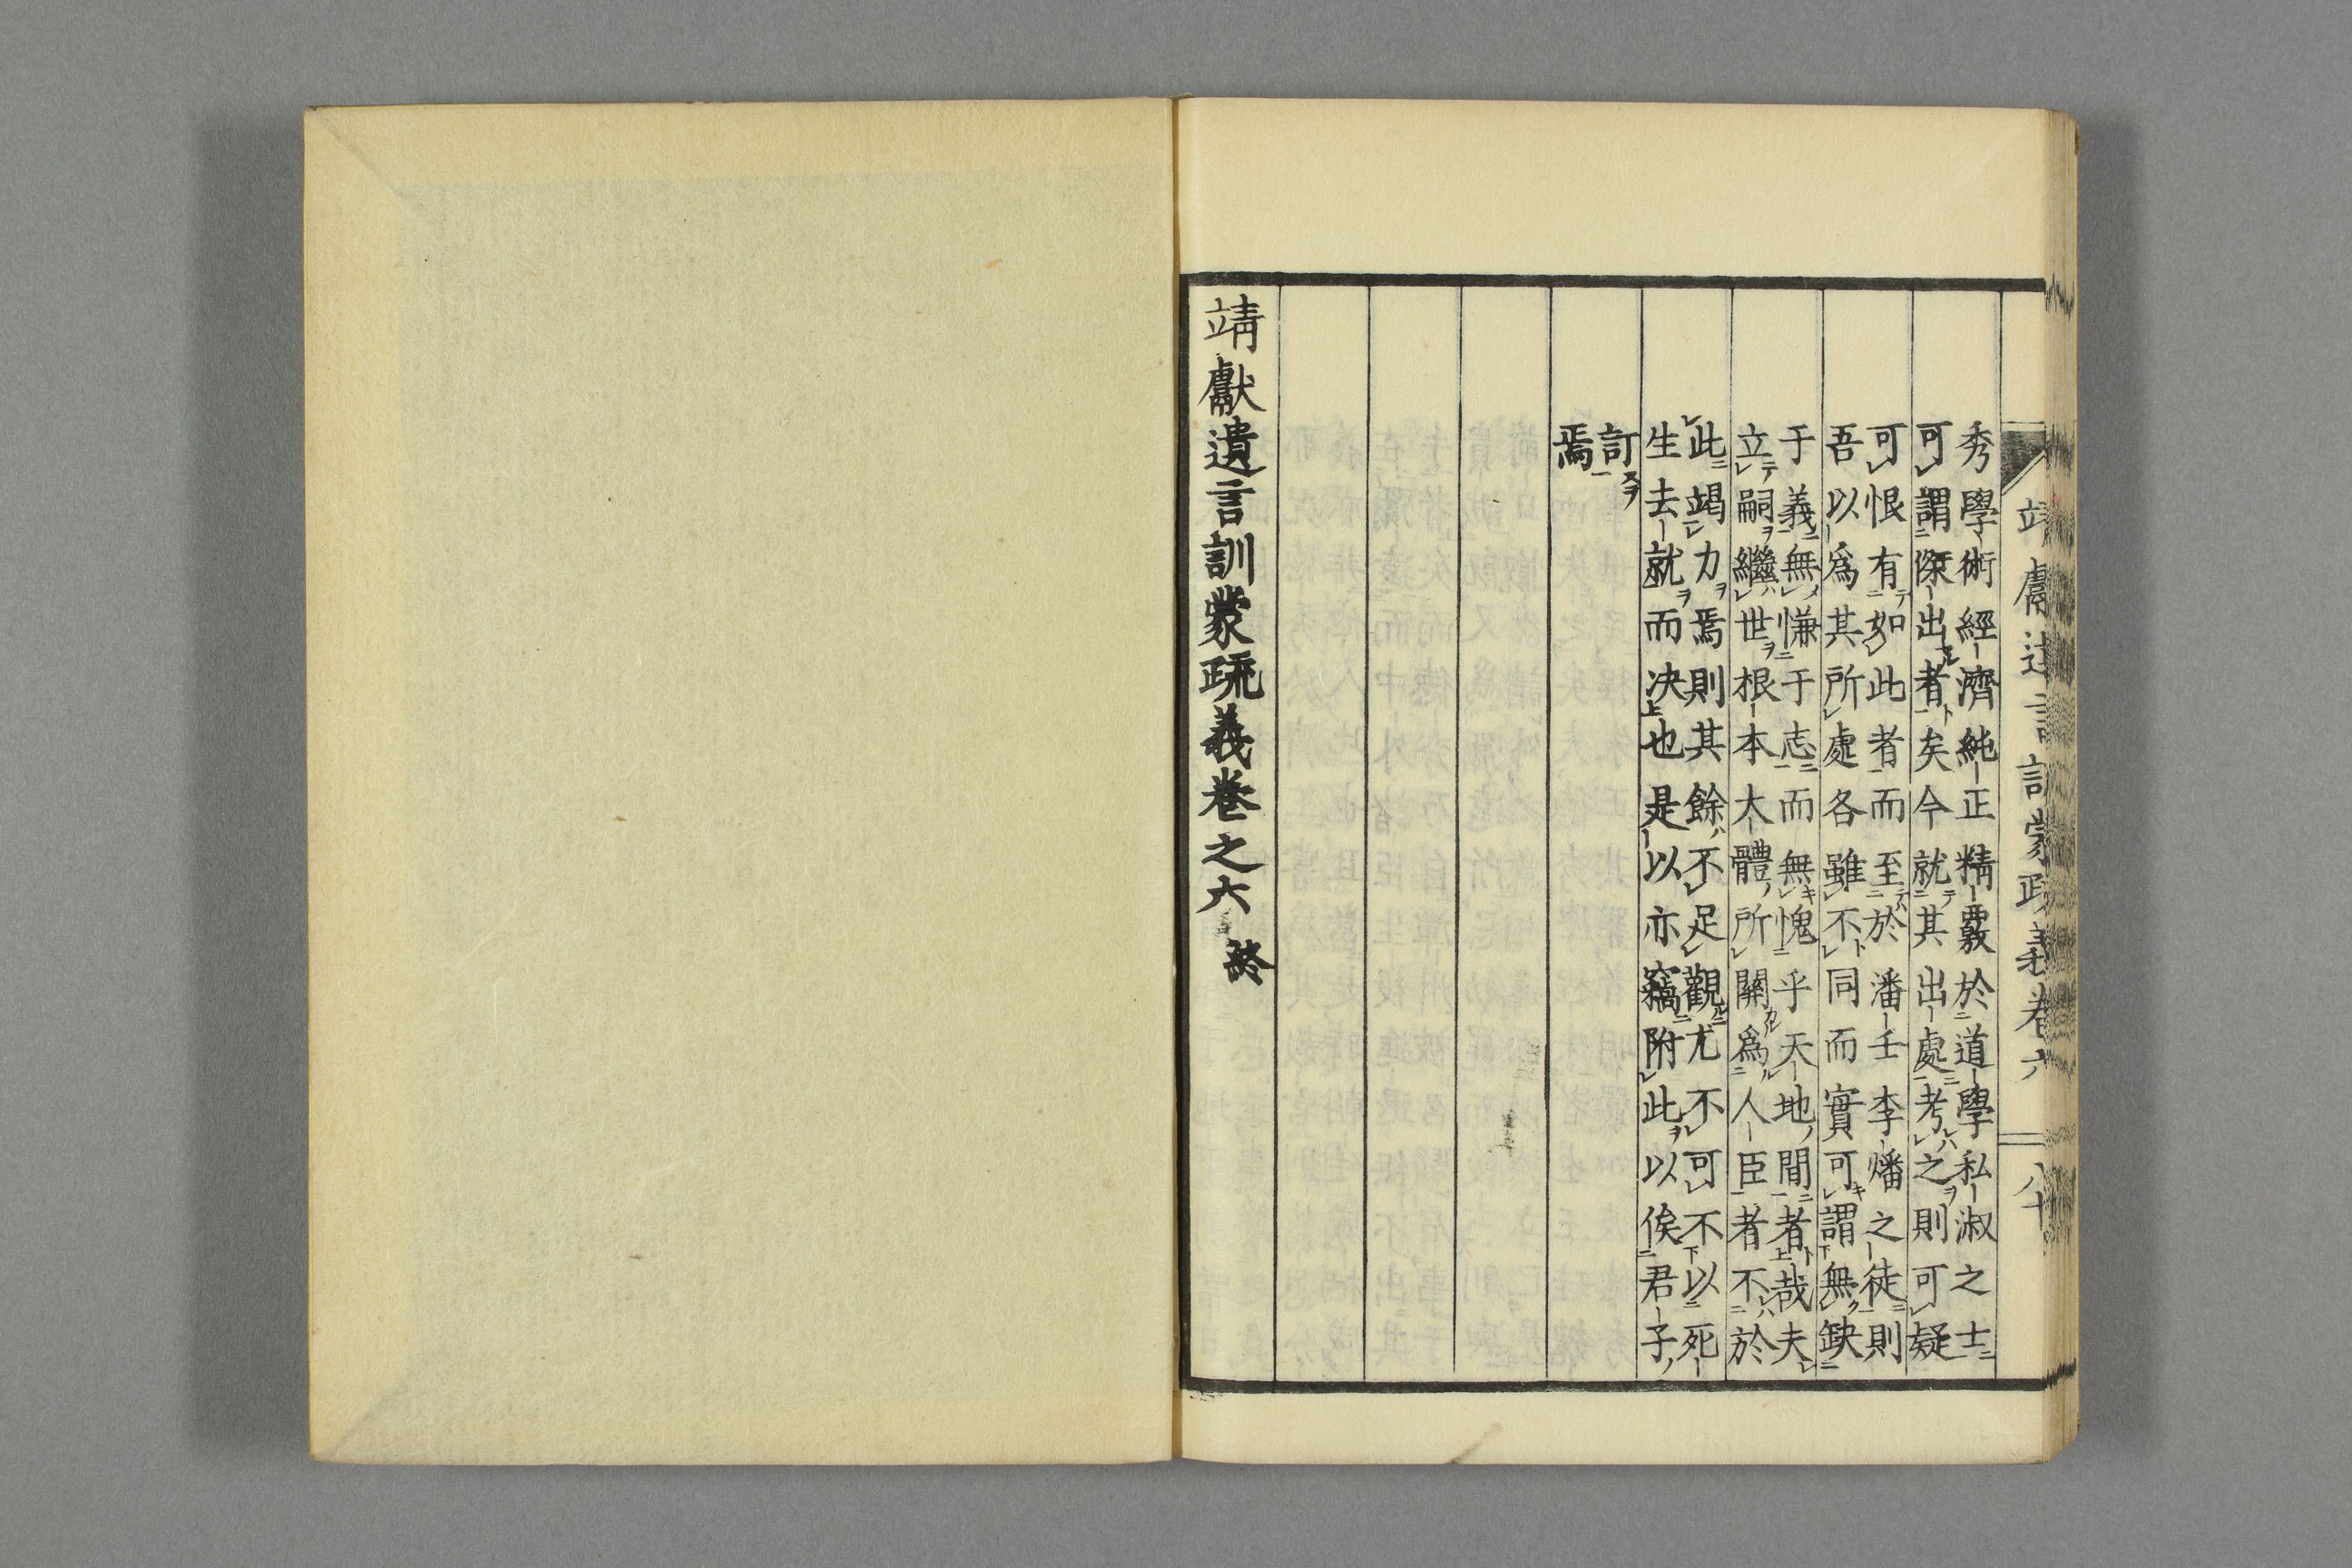 靖獻遺言訓蒙疏義卷六
八十
秀學術經濟純正精覈於道學私淑之士
可謂傑出者矣今就其出處考之則可疑
可恨有如此者而至於潘壬李燔之徒則
吾以爲其所處各雖不同而實可謂無缺
于義無慊于志而無愧乎天地間者哉夫
立嗣繼世根本大體所關爲人臣者不於
此竭力焉則其餘不足觀尤不可不以死
生去就而决也是以亦竊附此以俟君子
訂
焉
靖獻遺言訓蒙疏義卷之六 終